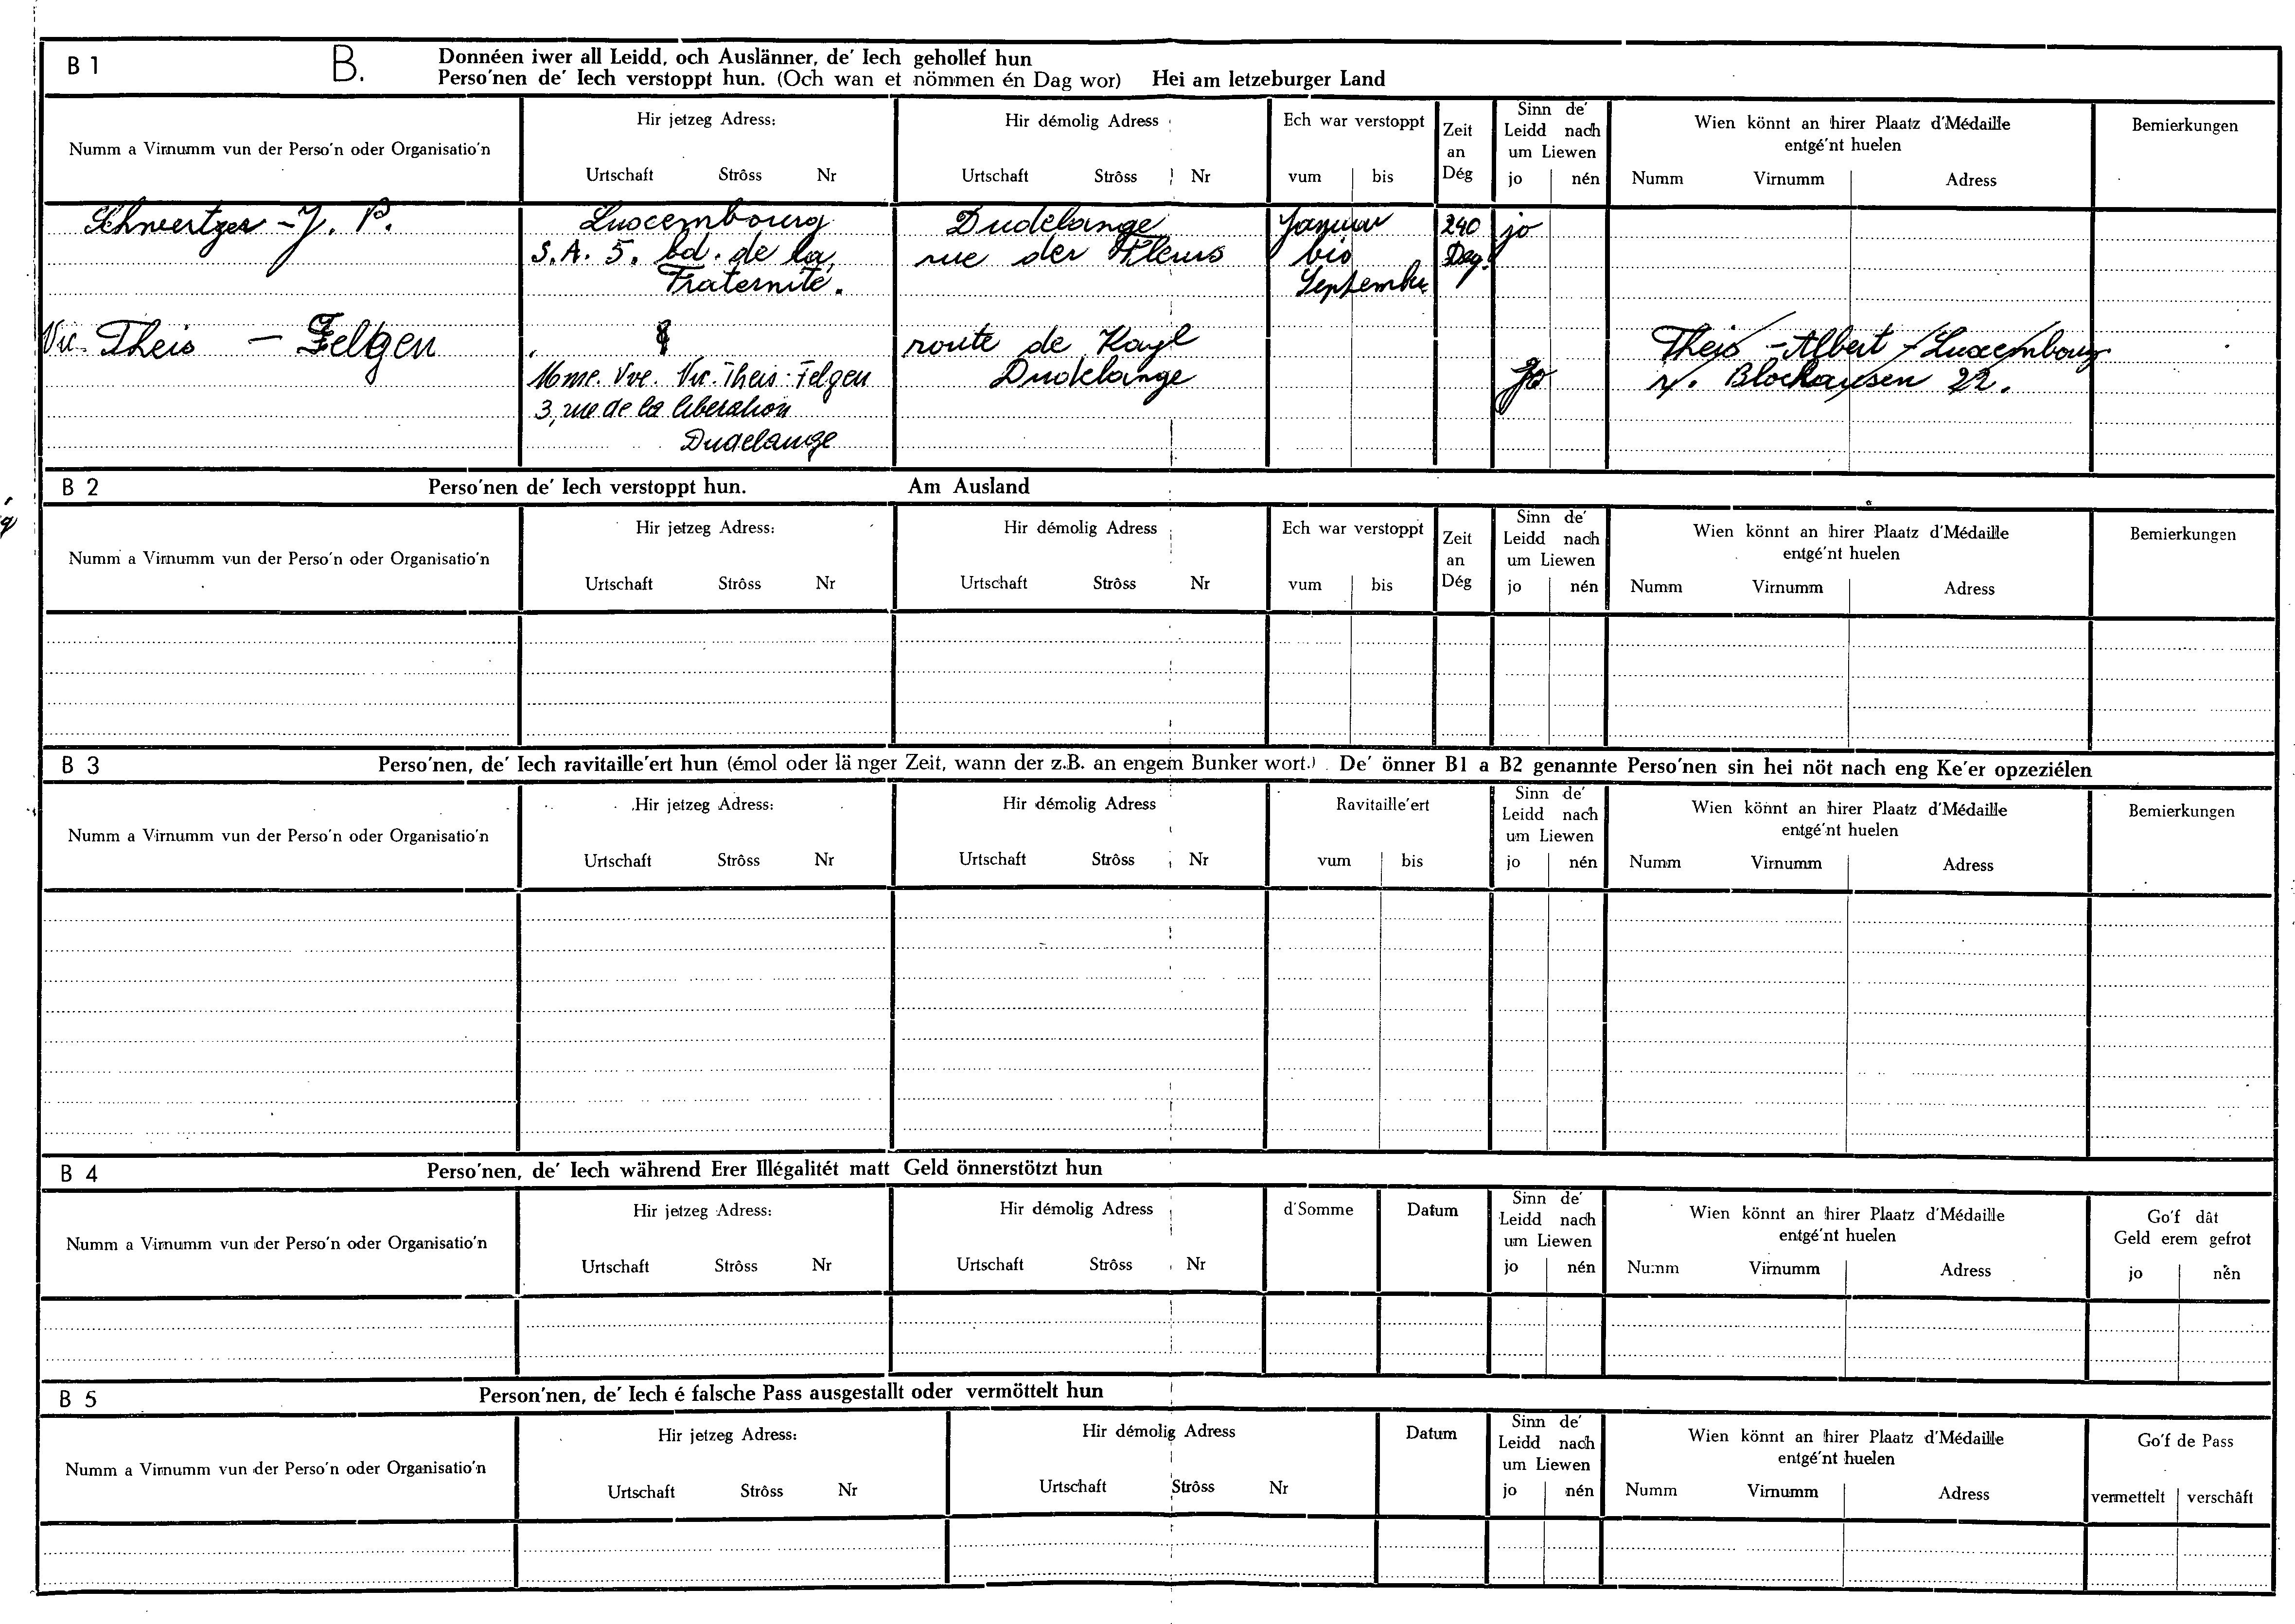 B 1 B. Donnéen iwer all Leidd, och Auslänner, de' Iech gehollef hun
Perso'nen de' Iech verstoppt hun. (Och wan et nömmen én Dag wor) Hei am letzeburger Land
Numm a Virnumm vun der Perso'n oder Organisatio'n
Hir jetzeg Adress:
Urtschaft Strôss Nr
Hir démolig Adress
Urtschaft Strôss Nr
Ech war verstoppt
vum bis
Zeit
an
Dég
Sinn de'
Leidd nach
um Liewen
jo nén
Wien könnt an hirer Plaatz d'Médaille
entgé'nt huelen
Numm Virnumm Adress
Bemierkungen
Schwertzer - J. P.
Luxembourg
S.A. 5. bd. de la
Fraternité.
Dudelange
rue der Fleurs
Januar
bis
September
240
Deg.
jo
Vic. Theis - Felgen
Mme. Vve. Vic. Theis-Felgen
3, rue de la libération
Dudelange
route de Kayl
Dudelange
Jo
Theis - Albert - Luxembourg
r. Blochausen 22.
B 2 Perso'nen de' Iech verstoppt hun. Am Ausland
Numm a Virnumm vun der Perso'n oder Organisatio'n
Hir jetzeg Adress:
Urtschaft Strôss Nr
Hir démolig Adress
Urtschaft Strôss Nr
Ech war verstoppt
vum bis
Zeit
an
Dég
Sinn de'
Leidd nach
um Liewen
jo nén
Wien könnt an hirer Plaatz d'Médaille
entgé'nt huelen
Numm Virnumm Adress
Bemierkungen
B 3 Perso'nen, de' Iech ravitaille'ert hun (émol oder länger Zeit, wann der z.B. an engem Bunker wort.) De' önner B1 a B2 genannte Perso'nen sin hei nöt nach eng Ke'er opzeziélen
Numm a Virnumm vun der Perso'n oder Organisatio'n
Hir jetzeg Adress:
Urtschaft Strôss Nr
Hir démolig Adress
Urtschaft Strôss Nr
Ravitaille'ert
vum bis
Sinn de'
Leidd nach
um Liewen
jo nén
Wien könnt an hirer Plaatz d'Médaille
entgé'nt huelen
Numm Virnumm Adress
Bemierkungen
B 4 Perso'nen, de' Iech während Erer Illégalitét matt Geld önnerstötzt hun
Numm a Virnumm vun der Perso'n oder Organisatio'n
Hir jetzeg Adress:
Urtschaft Strôss Nr
Hir démolig Adress
Urtschaft Strôss Nr
d'Somme
Datum
Sinn de'
Leidd nach
um Liewen
jo nén
Wien könnt an hirer Plaatz d'Médaille
entgé'nt huelen
Numm Virnumm Adress
Go'f dât
Geld erem gefrot
jo nén
B 5 Person'nen, de' Iech é falsche Pass ausgestallt oder vermöttelt hun
Numm a Virnumm vun der Perso'n oder Organisatio'n
Hir jetzeg Adress:
Urtschaft Strôss Nr
Hir démolig Adress
Urtschaft Strôss Nr
Datum
Sinn de'
Leidd nach
um Liewen
jo nén
Wien könnt an hirer Plaatz d'Médaille
entgé'nt huelen
Numm Virnumm Adress
Go'f de Pass
vermettelt verschâft